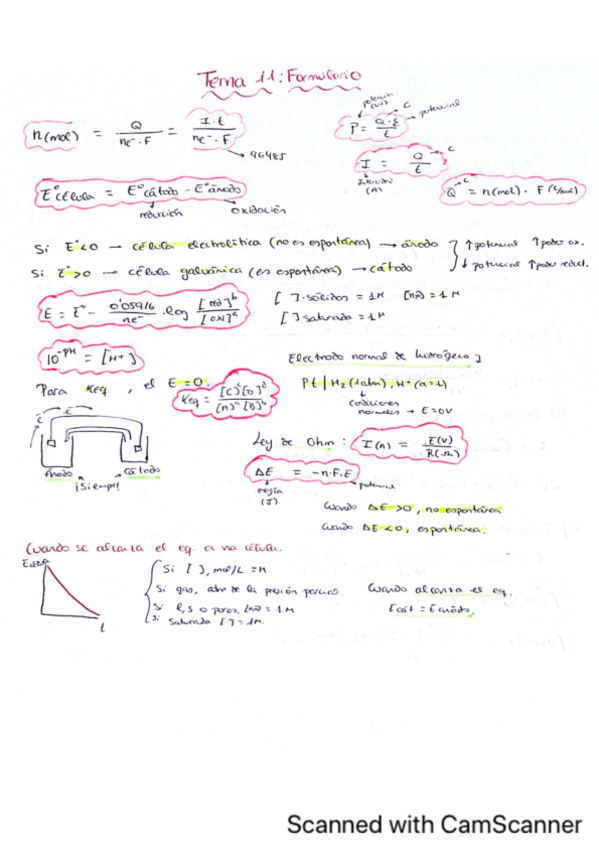 Tema 11: Formulario
n(mol) = Q / ne⁻·F = I·t / ne⁻·F
→ 96485
P = Q·E / t
potencia (W)
C
potencial
I = Q / t
C
Intensidad (A)
Q = n(mol) · F (C/mol)
C
E°célula = E°cátodo - E°ánodo
reducción
oxidación
Si E°<0 → célula electrolítica (no es espontánea) → ánodo } ↑potencial ↑poder ox.
Si E°>0 → célula galvánica (es espontánea) → cátodo } ↓ potencial ↑poder reduct.
E = E° - 0'05916 / ne⁻ · log [red]ᵇ / [oxi]ᵃ
[ ] sólidos = 1M
[ ] saturada = 1M
10⁻ᵖᴴ = [H+]
Electrodo normal de hidrógeno
Para Keq, el E=0.
Keq = [C]ᶜ[D]ᵈ / [A]ᵃ[B]ᵇ
Pt | H₂(1atm), H+(a=1)
condiciones normales → E=0V
Ánodo
Cátodo
¡Siempre!
Ley de Ohm: I(A) = E(V) / R(Ω)
ΔE = -n·F·E
(J)
potencial
Cuando ΔE>0, no espontánea
Cuando ΔE<0, espontánea.
Cuando se alcanza el eq. en una célula.
t
Si [ ], mol/L = M
Si gas, atm de la presión parcial
Si saturada [ ]=1M.
Cuando alcanza el eq.
Ecát = Eánodo.
Scanned with CamScanner